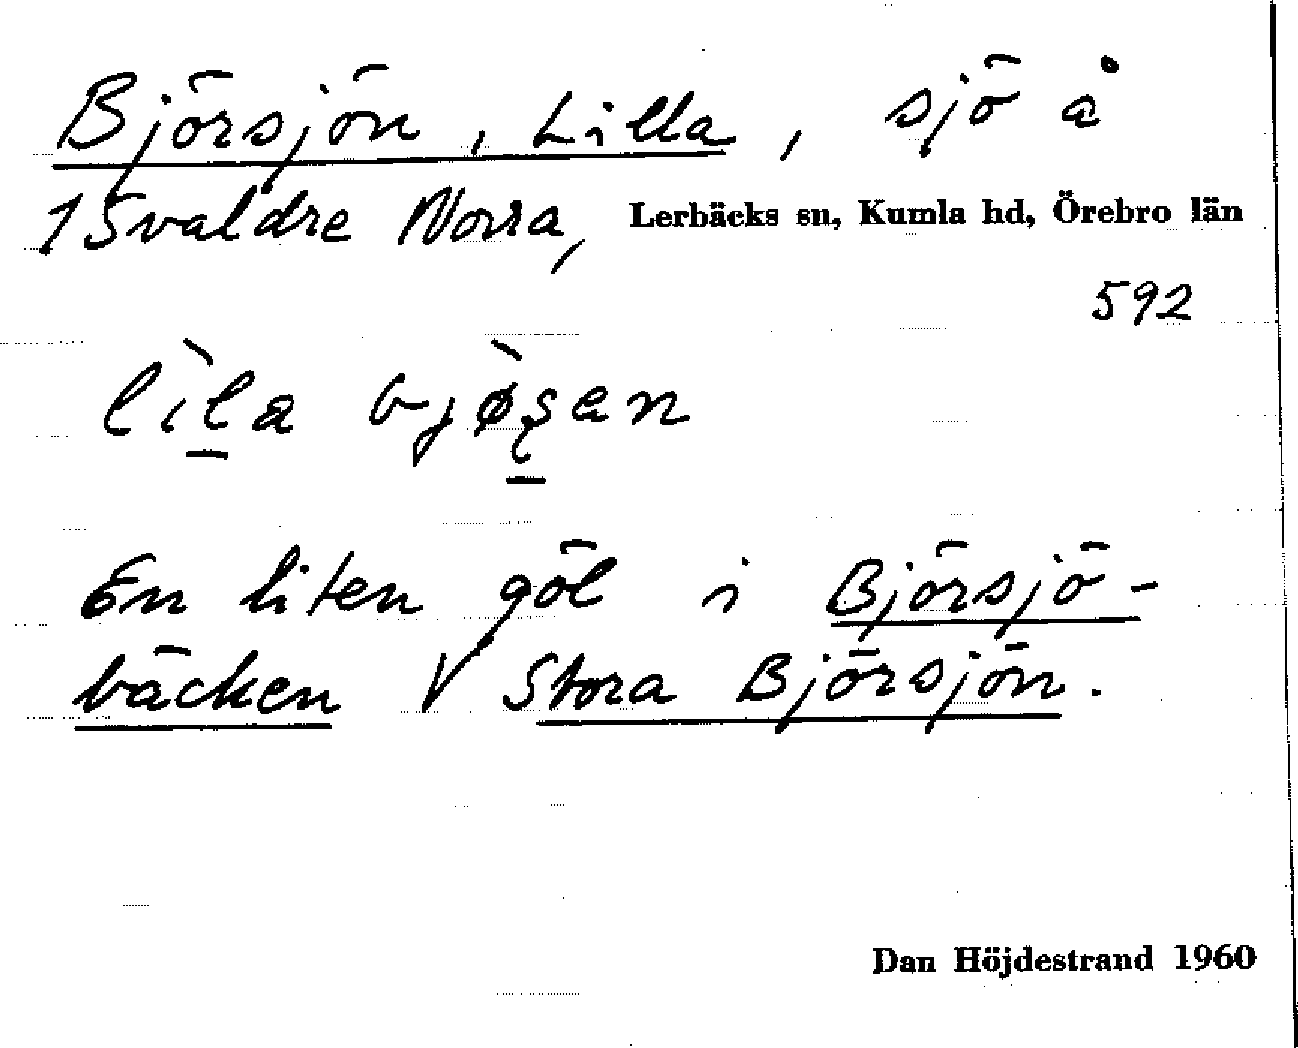 Björsjön, Lilla, sjö å
1 Svaldre Norra, Lerbäcks sn, Kumla hd, Örebro län
592
lìl̠a bjø̀ʂ̠an
En liten göl i Björsjö-
bäcken V Stora Björsjön.
Dan Höjdestrand 1960